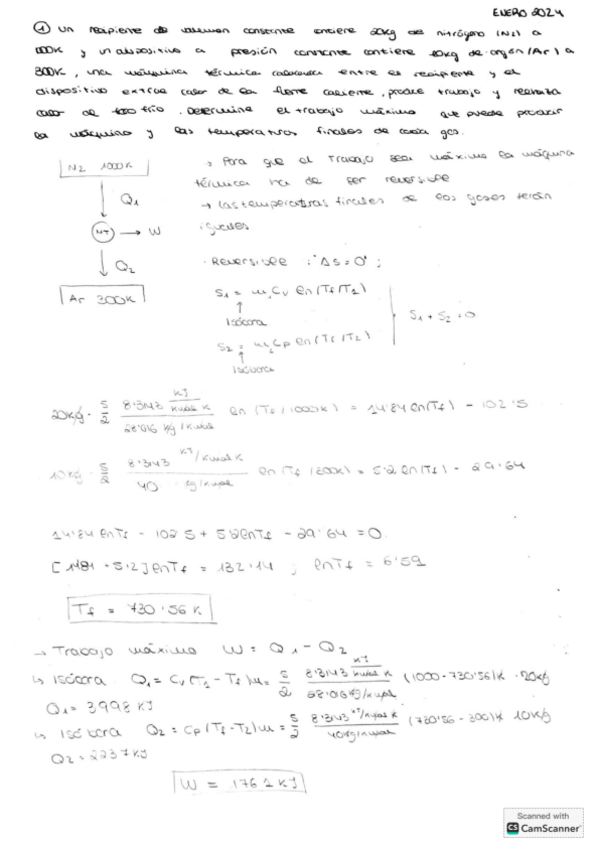 ENERO 2024
① Un recipiente de volumen constante contiene 20kg de nitrógeno (N2) a
1000K y un dispositivo a presión constante contiene 10kg de argón (Ar) a
300K, una máquina térmica colocada entre el recipiente y el
dispositivo extrae calor de la fuente caliente, produce trabajo y rechaza
calor al foco frío. Determine el trabajo máximo que puede producir
la máquina y las temperaturas finales de cada gas.
N2 1000K
Q1
MT → W
Q2
Ar 300K
→ Para que el trabajo sea máximo la máquina
térmica ha de ser reversible
→ Las temperaturas finales de los gases serán
iguales
· Reversible : "ΔS = 0" ;
S1 = m1 Cv ln (Tf/T1)
Isócora
S2 = m2 Cp ln (Tf/T2)
S1 + S2 = 0
20kg · 5/2 8'3143 KJ/kmol K / 28'016 kg/kmol ln (Tf/1000K) = 14'84 ln(Tf) - 102'5
10kg · 5/2 8'3143 KJ/kmol K / 40 kg/kmol ln (Tf/300K) = 5'2 ln(Tf) - 29'64
14'84 lnTf - 102'5 + 5'2 lnTf - 29'64 = 0
lnTf = 132'14 ; lnTf = 6'59
Tf = 730'56 K
→ Trabajo máximo W = Q1 - Q2
↳ Isócora Q1 = Cv (T1 - Tf) m = 5/2 8'3143 KJ/kmol K / 28'016 kg/kmol (1000 - 730'56)K · 20kg
Q1 = 3998 KJ
↳ Isóbora Q2 = Cp (Tf - T2) m = 5/2 8'3143 KJ/kmol K / 40kg/kmol (730'56 - 300)K 10kg
Q2 = 2237 KJ
W = 1761 KJ
Scanned with
CS CamScanner